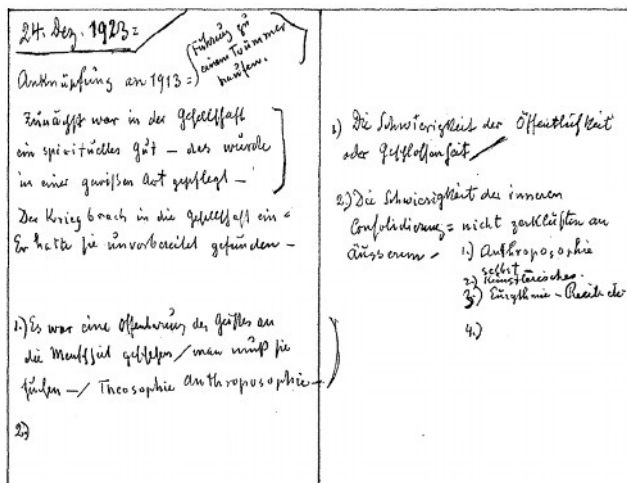 24. Dez. 1923 =
Führung zu
einem Trümmer
haufen.
Anknüpfung an 1913 =
Zunächst war in der Gesellschaft
ein spirituelles Gut – das wurde
in einer gewißen Art gepflegt –
Der Krieg brach in die Gesellschaft ein =
Er hatte sie unvorbereitet gefunden –
1.) Es war eine Offenbarung des Geistes an
die Menschheit geschehen / man muß sie
suchen – / Theosophie Anthroposophie –
2.)
1.) Die Schwierigkeit der Öffentlichkeit
oder Geschlossenheit /
2.) Die Schwierigkeit der inneren
Consolidierung = nicht zerklüften an
äusserem – 1.) Anthroposophie
selbst
2.) Künstlerisches.
3.) Eurythmie –
4.)